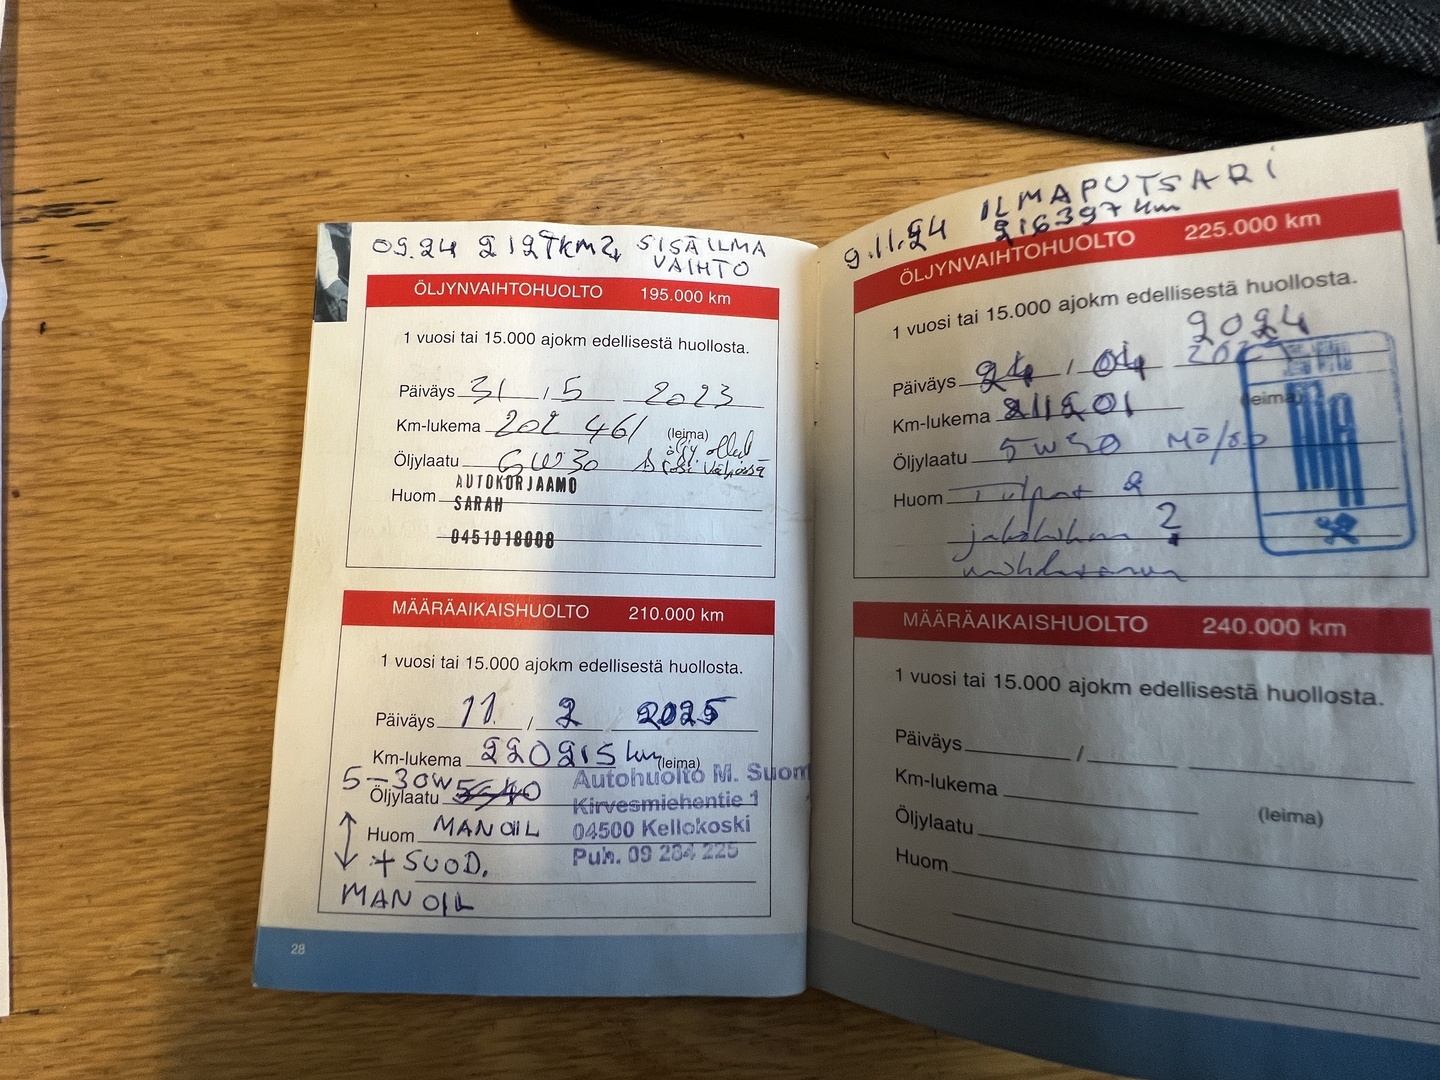 09.24 SISÄILMA
VAIHTO
ÖLJYNVAIHTOHUOLTO 195.000 km
1 vuosi tai 15.000 ajokm edellisestä huollosta.
Päiväys 31 / 5 2023
Km-lukema 202 461 (leima)
Öljylaatu 5W30
Huom AUTOKORJAAMO
SARAH
0451018008
MÄÄRÄAIKAISHUOLTO 210.000 km
1 vuosi tai 15.000 ajokm edellisestä huollosta.
Päiväys 11. / 2 2025
Km-lukema 220215 km (leima)
5-30W
Öljylaatu
Huom MANOIL
+ SUOD.
MANOIL
Autohuolto M. Suom
Kirvesmiehentie 1
04500 Kellokoski
Puh. 09 284 225
28
9.11.24 ILMAPUTSARI
216397 km
ÖLJYNVAIHTOHUOLTO 225.000 km
1 vuosi tai 15.000 ajokm edellisestä huollosta.
2024
Päiväys 24 / 04
Km-lukema 211201 (leima)
Öljylaatu 5W30
Huom Tulpat
MÄÄRÄAIKAISHUOLTO 240.000 km
1 vuosi tai 15.000 ajokm edellisestä huollosta.
Päiväys /
Km-lukema
(leima)
Öljylaatu
Huom